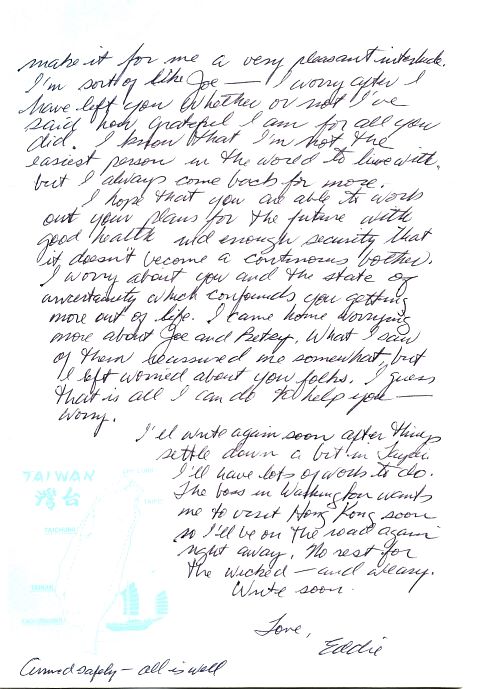 make it for me a very pleasant interlude.
I'm sort of like Joe — I worry after I
have left you whether or not I've
said how grateful I am for all you
did. I know that I'm not the
easiest person in the world to live with,
but I always come back for more.
I hope that you are able to work
out your plans for the future with
good health and enough security that
it doesn't become a continuous bother.
I worry about you and the state of
uncertainty which confounds you getting
more out of life. I came home worrying
more about Joe and Betsy. What I saw
of them reassured me somewhat, but
I left worried about you folks. I guess
that is all I can do to help you —
worry.
I'll write again soon after things
settle down a bit in Taipei
I'll have lots of work to do.
The boss in Washington wants
me to visit Hong Kong soon
so I'll be on the road again
right away. No rest for
the wicked — and weary.
Write soon.
Love,
Eddie
TAIWAN
灣台
TAIPEI
TAICHUNG
TAINAN
Arrived safely — all is well